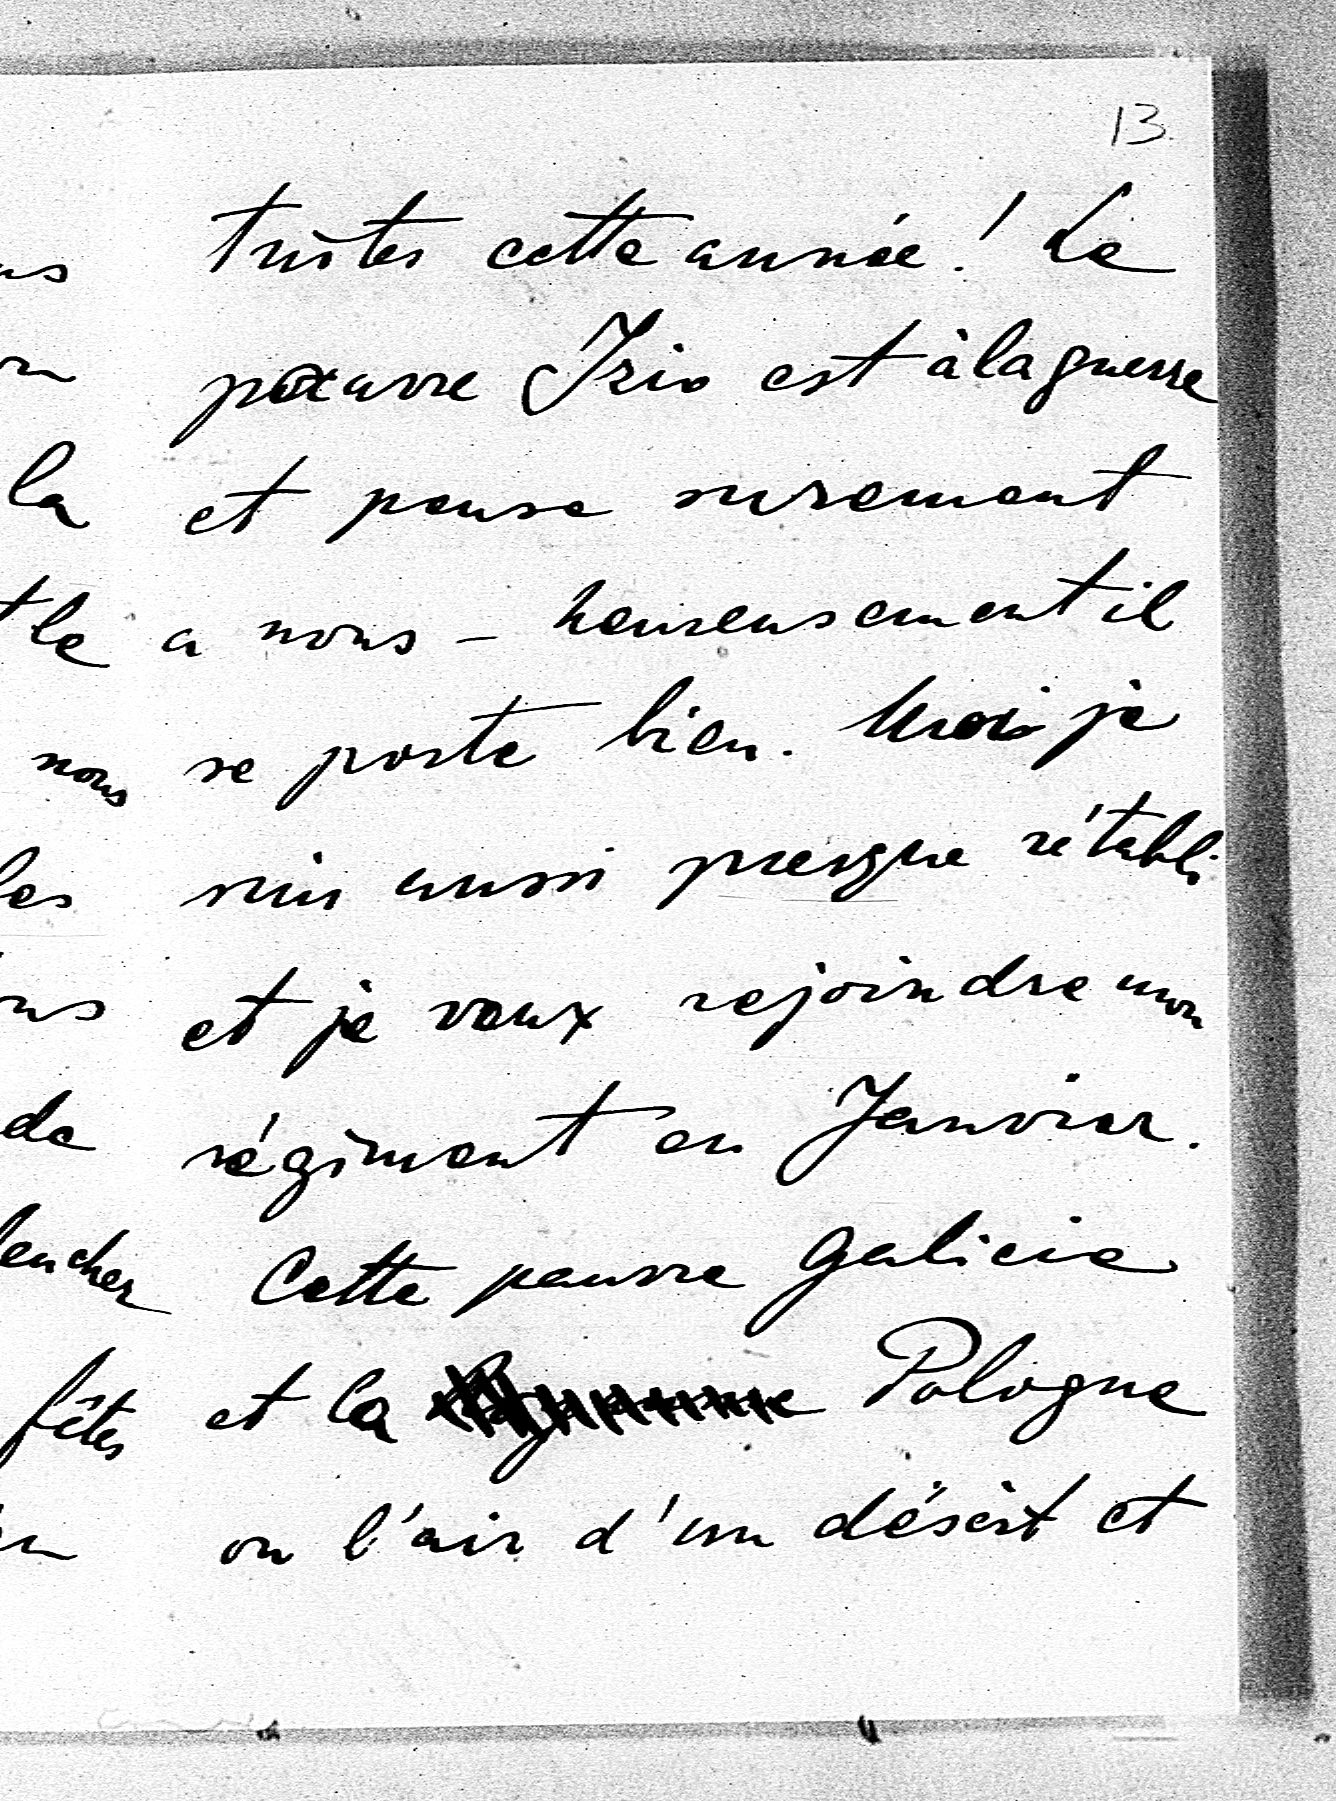 13.
tristes cette année! Le
pauvre Izio est à la guerre
et pense surement
a nous – heureusement il
se porte bien. Moi je
suis aussi presque rétabli
et je veux rejoindre mon
régiment en Janvier.
Cette pauvre Galicie
et la Pologne
on l'air d'un désert et
la
le
nous
les
de
fêtes